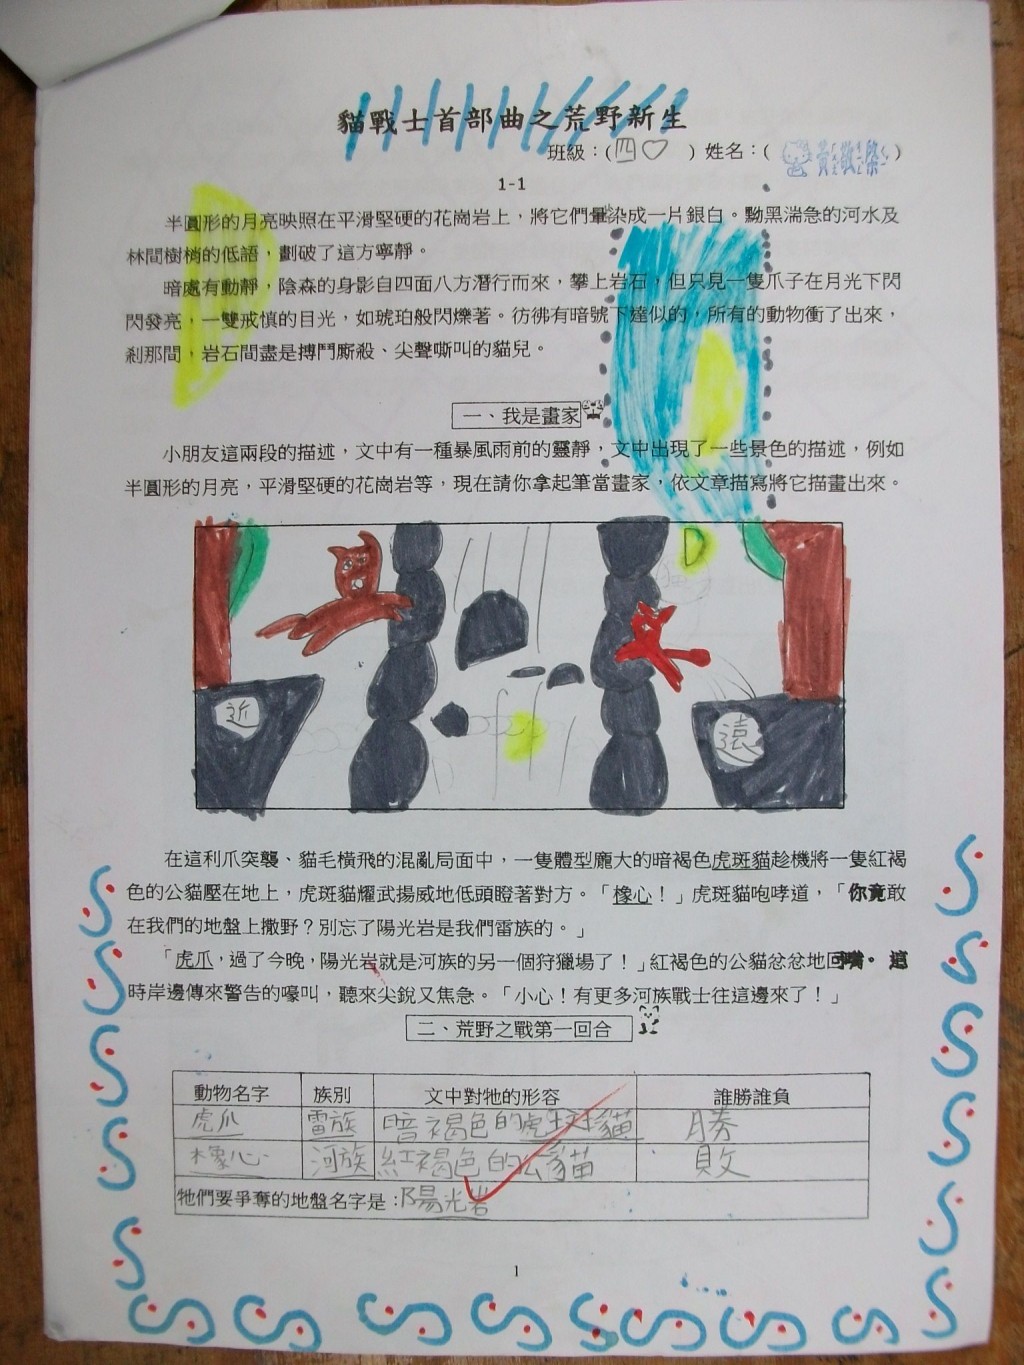 貓戰士首部曲之荒野新生
班級：(四♡ ) 姓名：( 黃 )
1-1
半圓形的月亮映照在平滑堅硬的花崗岩上，將它們暈染成一片銀白。黝黑湍急的河水及
林間樹梢的低語，劃破了這方寧靜。
暗處有動靜，陰森的身影自四面八方潛行而來，攀上岩石，但只見一隻爪子在月光下閃
閃發亮，一雙戒慎的目光，如琥珀般閃爍著。彷彿有暗號下達似的，所有的動物衝了出來，
剎那間，岩石間盡是搏鬥廝殺、尖聲嘶叫的貓兒。
一、我是畫家
小朋友這兩段的描述，文中有一種暴風雨前的靈靜，文中出現了一些景色的描述，例如
半圓形的月亮，平滑堅硬的花崗岩等，現在請你拿起筆當畫家，依文章描寫將它描畫出來。
近
遠
在這利爪突襲、貓毛橫飛的混亂局面中，一隻體型龐大的暗褐色虎斑貓趁機將一隻紅褐
色的公貓壓在地上，虎斑貓耀武揚威地低頭瞪著對方。「橡心！」虎斑貓咆哮道，「你竟敢
在我們的地盤上撒野？別忘了陽光岩是我們雷族的。」
「虎爪，過了今晚，陽光岩就是河族的另一個狩獵場了！」紅褐色的公貓忿忿地回嘴。這
時岸邊傳來警告的嚎叫，聽來尖銳又焦急。「小心！有更多河族戰士往這邊來了！」
二、荒野之戰第一回合
動物名字 族別 文中對牠的形容 誰勝誰負
虎爪 雷族 暗褐色的虎斑貓 勝
橡心 河族 紅褐色的公貓 敗
牠們要爭奪的地盤名字是：陽光岩
1